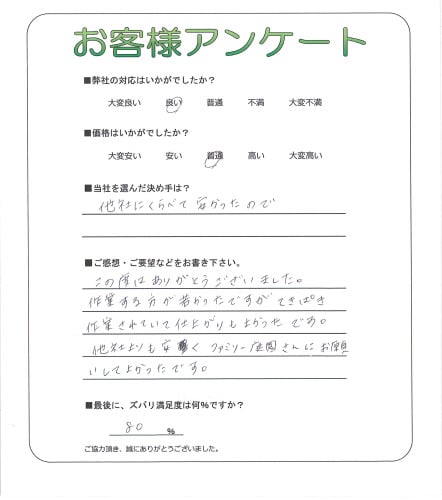 お客様アンケート
■弊社の対応はいかがでしたか?
大変良い 良い 普通 不満 大変不満
■価格はいかがでしたか?
大変安い 安い 普通 高い 大変高い
■当社を選んだ決め手は?
他社にくらべて安かったので
■ご感想・ご要望などをお書き下さい。
この度はありがとうございました。
作業する方が若かったですがてきぱき
作業されていて仕上がりもよかったです。
他社よりも安く ファミリー庭園さんにお願
いしてよかったです。
■最後に、ズバリ満足度は何%ですか?
80 %
ご協力頂き、誠にありがとうございました。